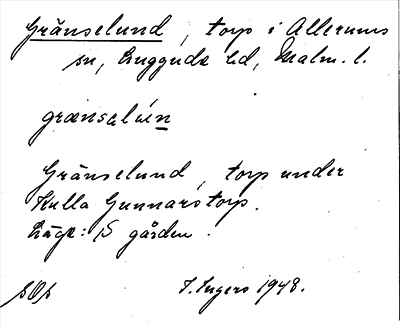 Gränselund, torp i Allerums
sn, Luggude hd, Malm. l.
grænsəlɯ́n
Gränselund, torp under
Kulla Gunnarstorp.
Läge: 15 gården.
T. Ingers 1948.